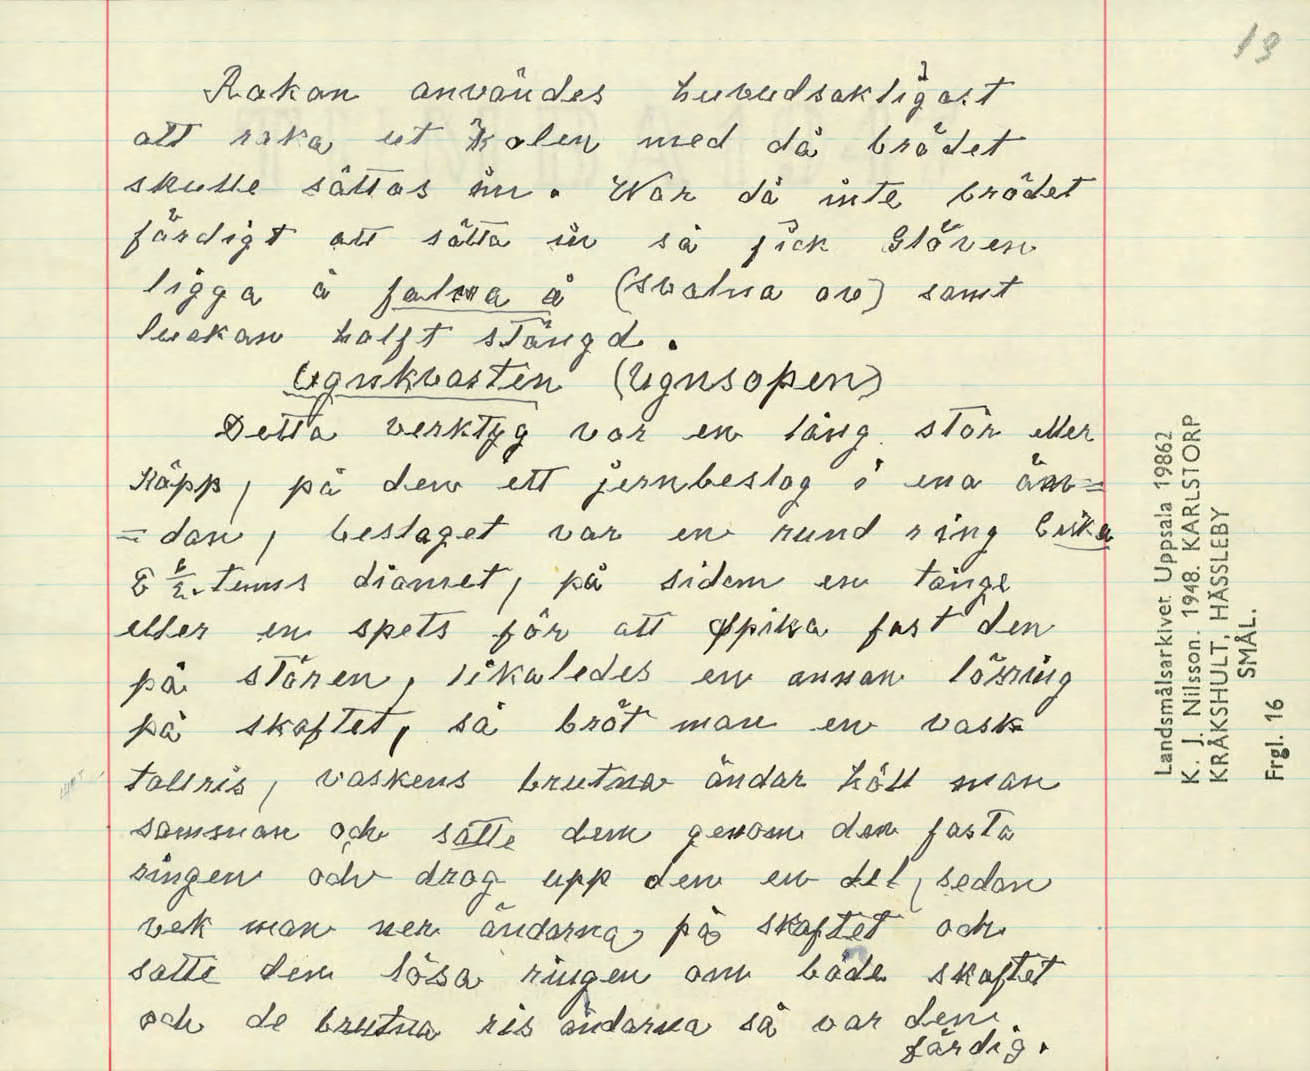 19
Rakan användes huvudsakligast
att raka ut kolen med då brödet
skulle sättas in. War då inte brödet
färdigt att sätta in så fick Glöven
ligga å falna å (svalna av) samt
luckan halft stängd.
Ugnkvasten (Ugnsopen)
Detta verktyg var en lång stör eller
Käpp, på den ett jernbeslag i ena än=
=dan, beslaget var en rund ring
tums diamet, på sidan en tånge
eller en spets för att spika fast den
på stören, likaledes en annan lösring
på skaftet, så bröt man en vask
tallris, vaskens brutna ändar höll man
samman och satte dem genom den fasta
ringen och drog upp den en del, sedan
vek man ner ändarna på skaftet och
satte den lösa ringen om både skaftet
och de brutna ris ändarna så var den
färdig.
Landsmålsarkivet Uppsala 19862
K. J. Nilsson. 1948. KARLSTORP
KRÅKSHULT, HÄSSLEBY
SMÅL.
Frgl. 16